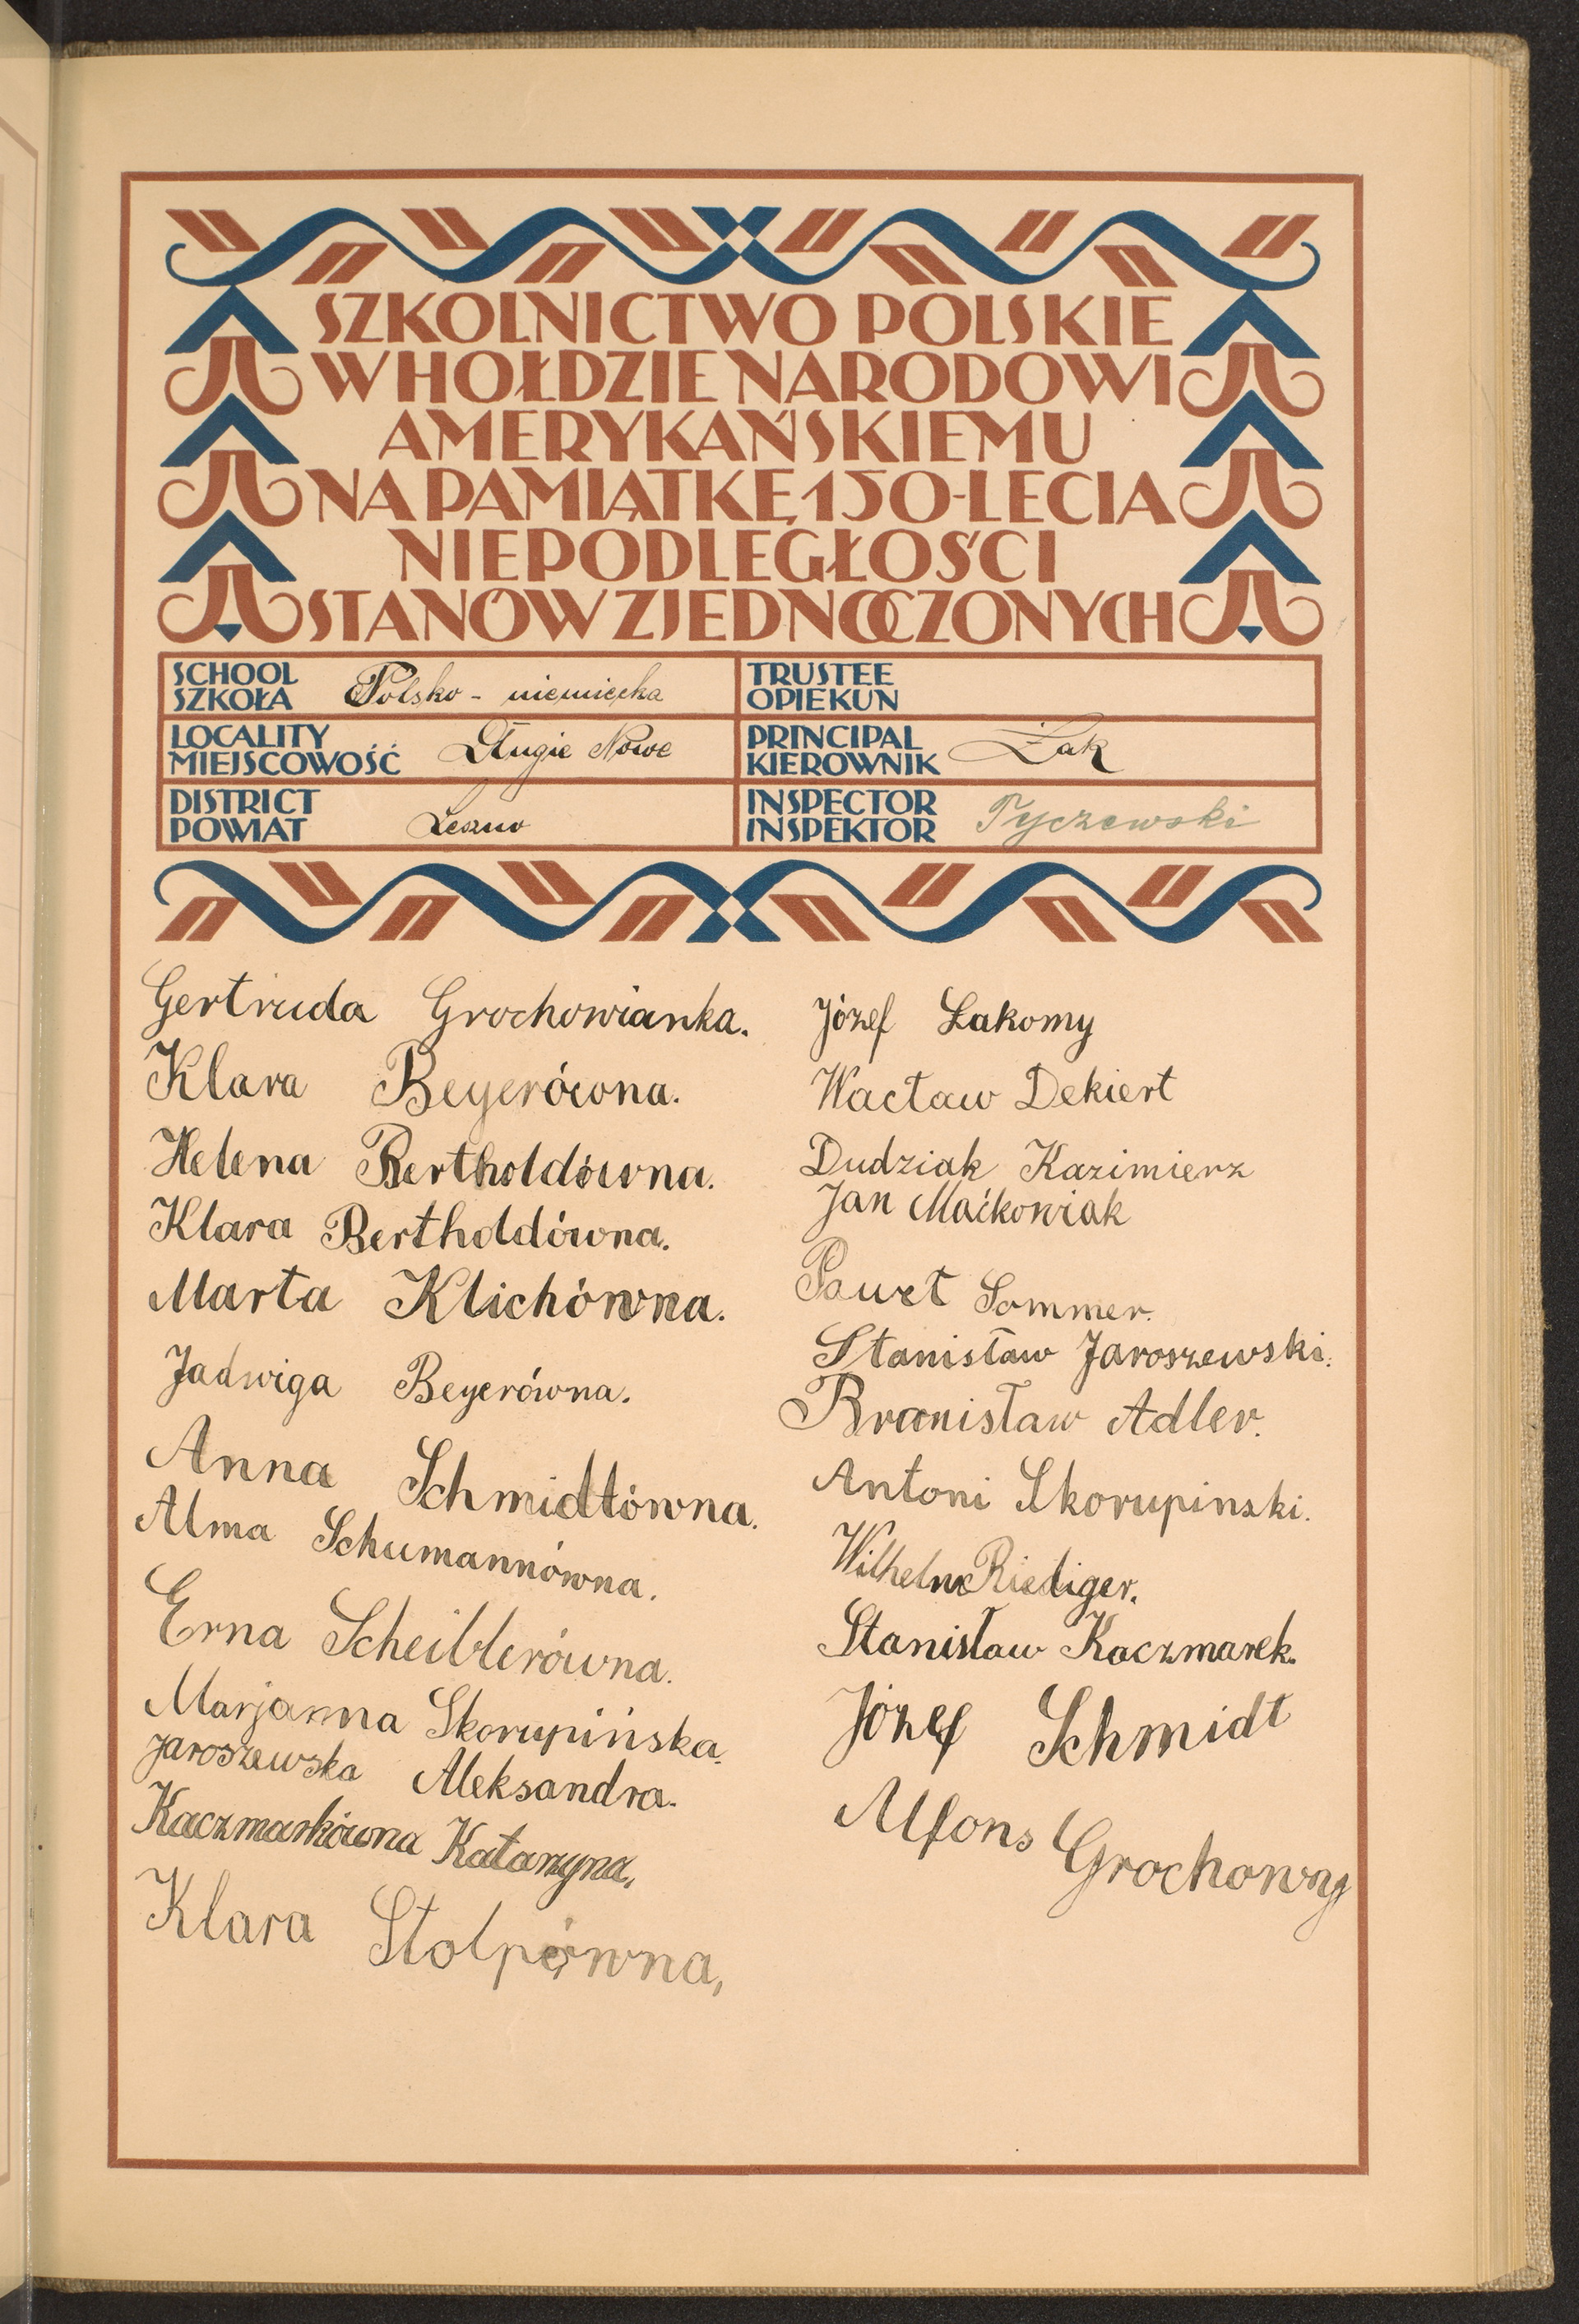 SZKOLNICTWO POLSKIE
W HOŁDZIE NARODOWI
AMERYKAŃSKIEMU
NA PAMIĄTKĘ 150-LECIA
NIEPODLEGŁOŚCI
STANÓW ZJEDNOCZONYCH
SCHOOL
SZKOŁA
Polsko - niemiecka
TRUSTEE
OPIEKUN
LOCALITY
MIEJSCOWOŚĆ
Długie Nowe
PRINCIPAL
KIEROWNIK
Żak
DISTRICT
POWIAT
Leszno
INSPECTOR
INSPEKTOR
Tyczewski
Gertruda Grochowianka.
Klara Beyerówna.
Helena Bertholdówna.
Klara Bertholdówna.
Marta Klichówna.
Jadwiga Beyerówna.
Anna Schmidtówna.
Alma Schumannówna.
Erna Scheiblerówna.
Marjanna Skorupińska.
Jaroszewska Aleksandra.
Kaczmarkówna Katarzyna,
Klara Stolpówna,
Józef Łakomy
Wacław Dekiert
Dudziak Kazimierz
Jan Maćkowiak
Paweł Sommer.
Stanisław Jaroszewski.
Bronisław Adler.
Antoni Skorupinski.
Wilhelm Riediger.
Stanisław Kaczmarek.
Józef Schmidt
Alfons Grochowy